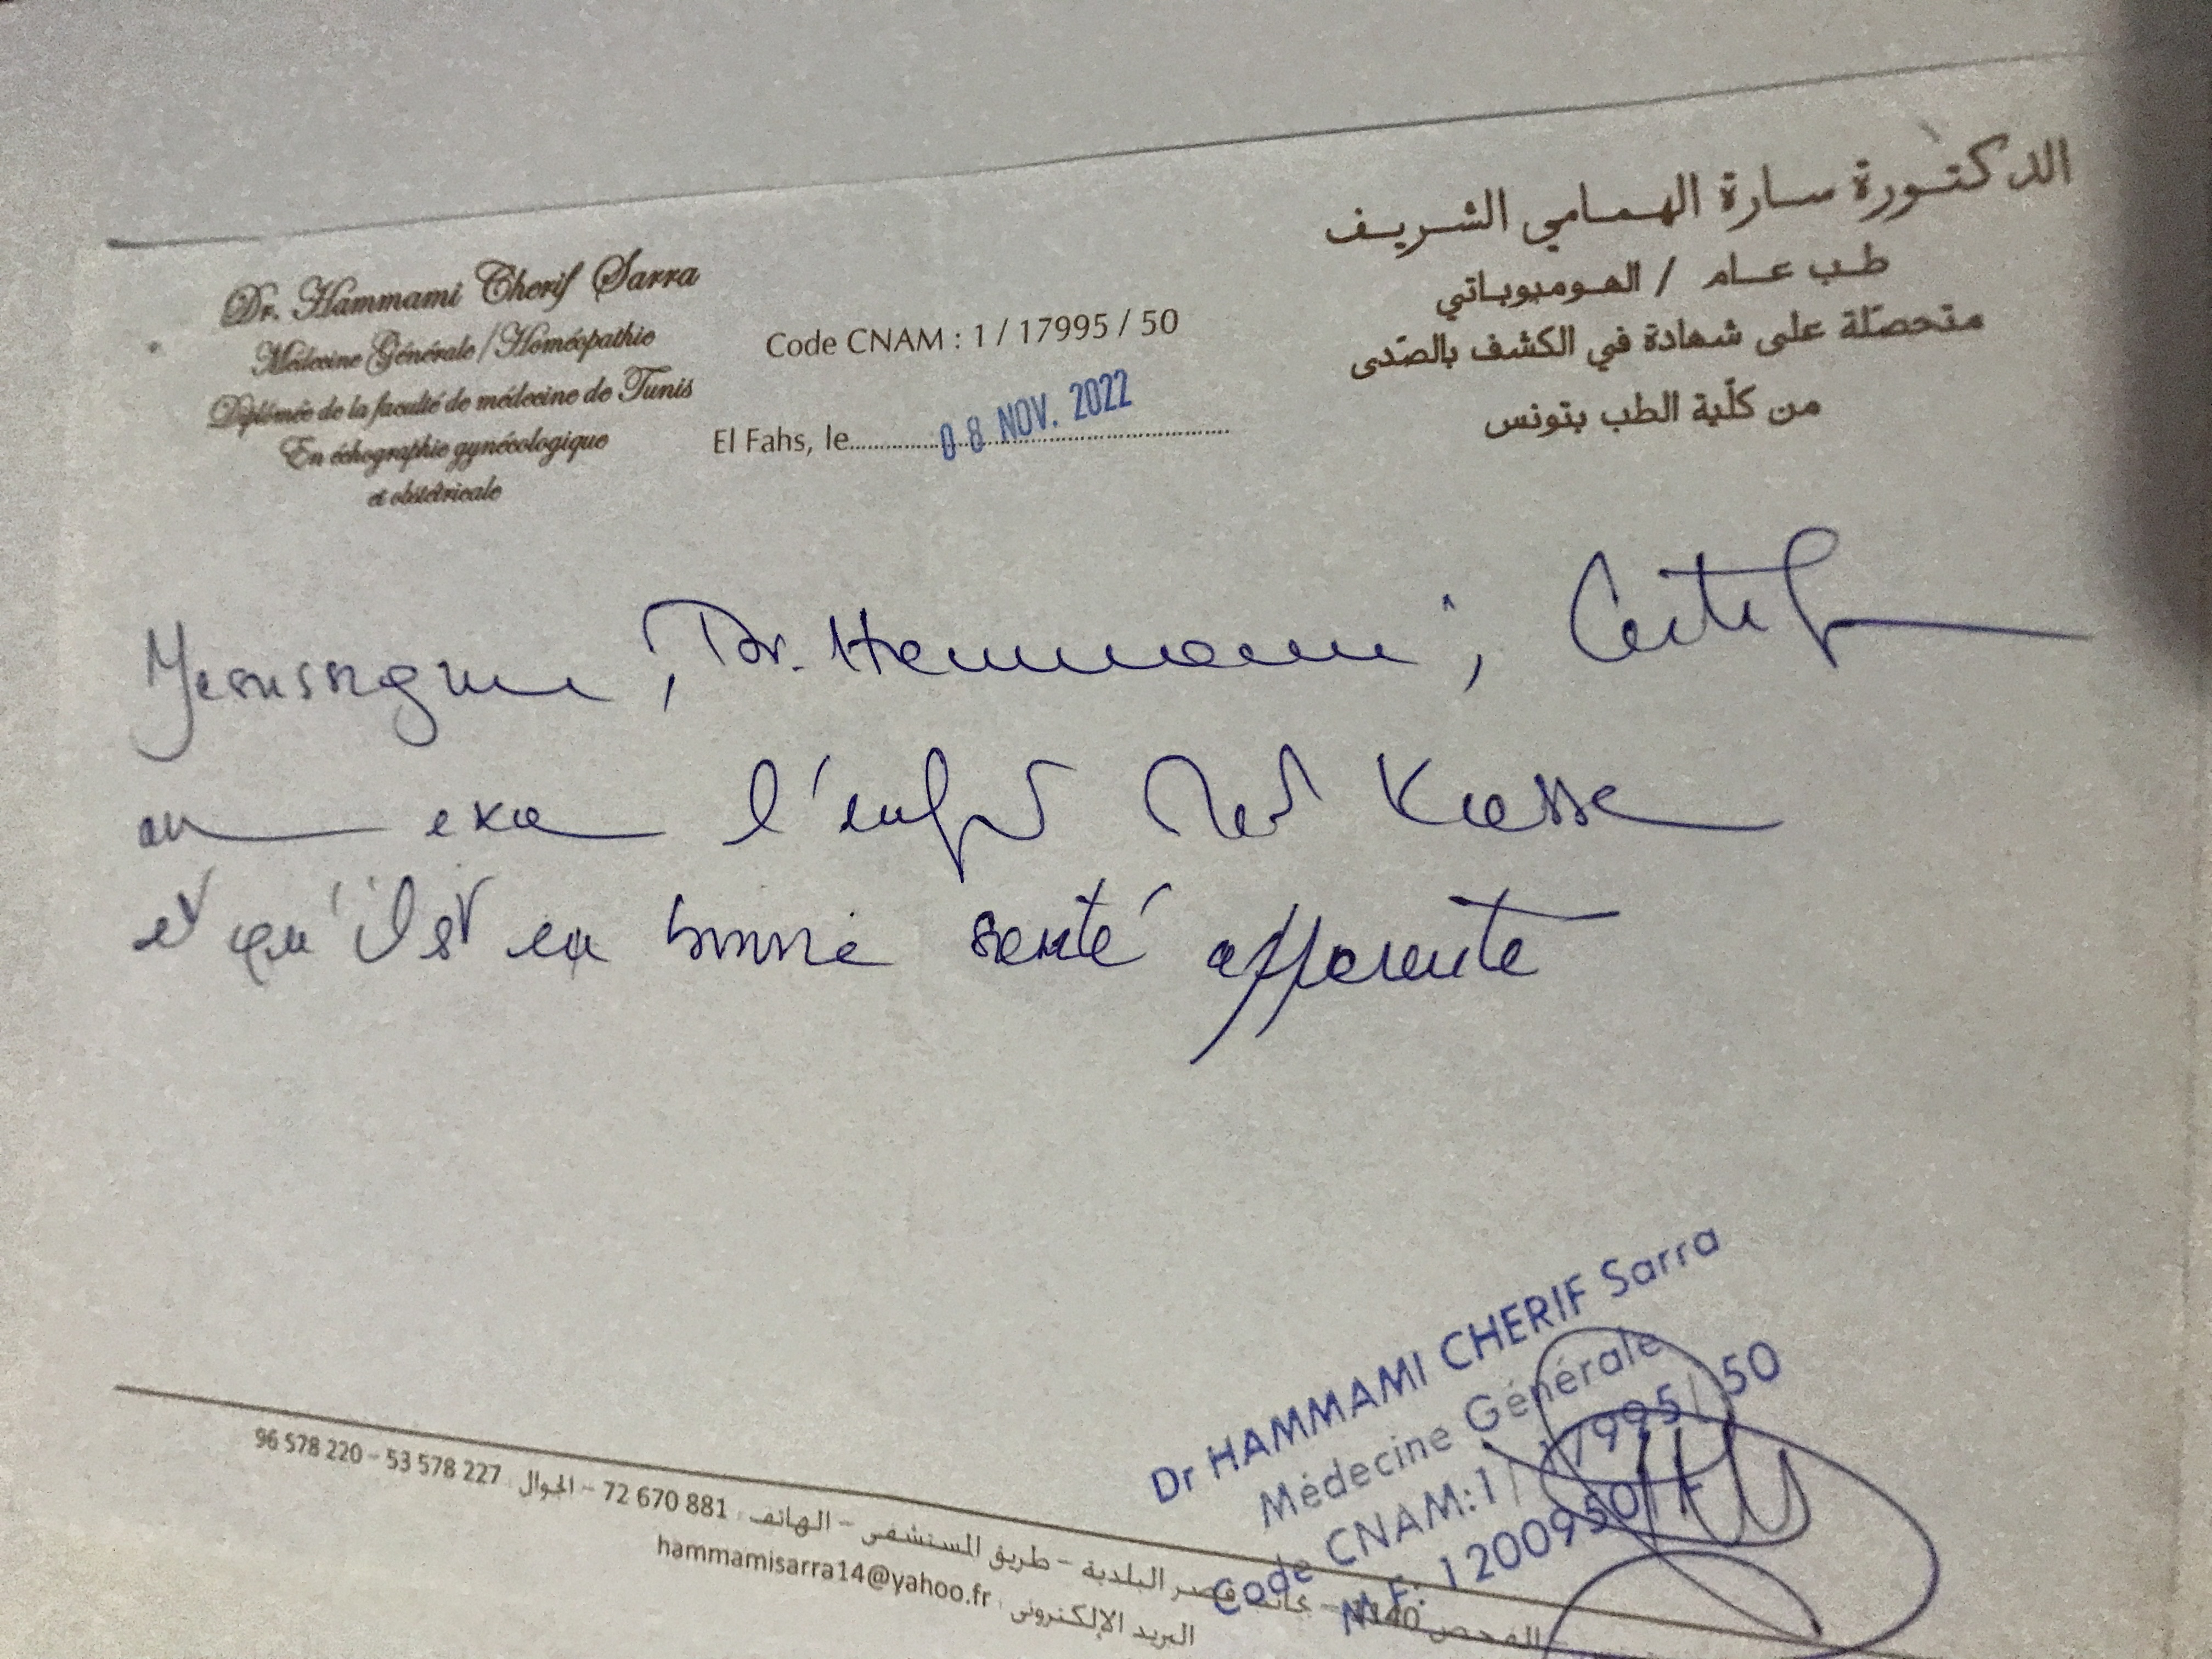 Dr. Hammami Cherif Sarra
Médecine Générale/Homéopathie
Diplômée de la faculté de médecine de Tunis
En échographie gynécologique
et obstétricale
Code CNAM : 1 / 17995 / 50
El Fahs, le 08 NOV. 2022
الدكتورة سارة الهمامي الشريف
طب عام / الهوميوباتي
متحصّلة على شهادة في الكشف بالصّدى
من كلّية الطب بتونس
Je soussigne, Dr. Hammami, Certif
exa l'enft
et qu'il est en bonne santé apparente
Dr HAMMAMI CHERIF Sarra
Médecine Générale
Code CNAM:1/17995/50
M.F: 1200950
الفحص 1140 - قصر البلدية - طريق المستشفى - الهاتف : 881 670 72 - الجوال : 227 578 53 - 220 578 96
البريد الإلكتروني : hammamisarra14@yahoo.fr